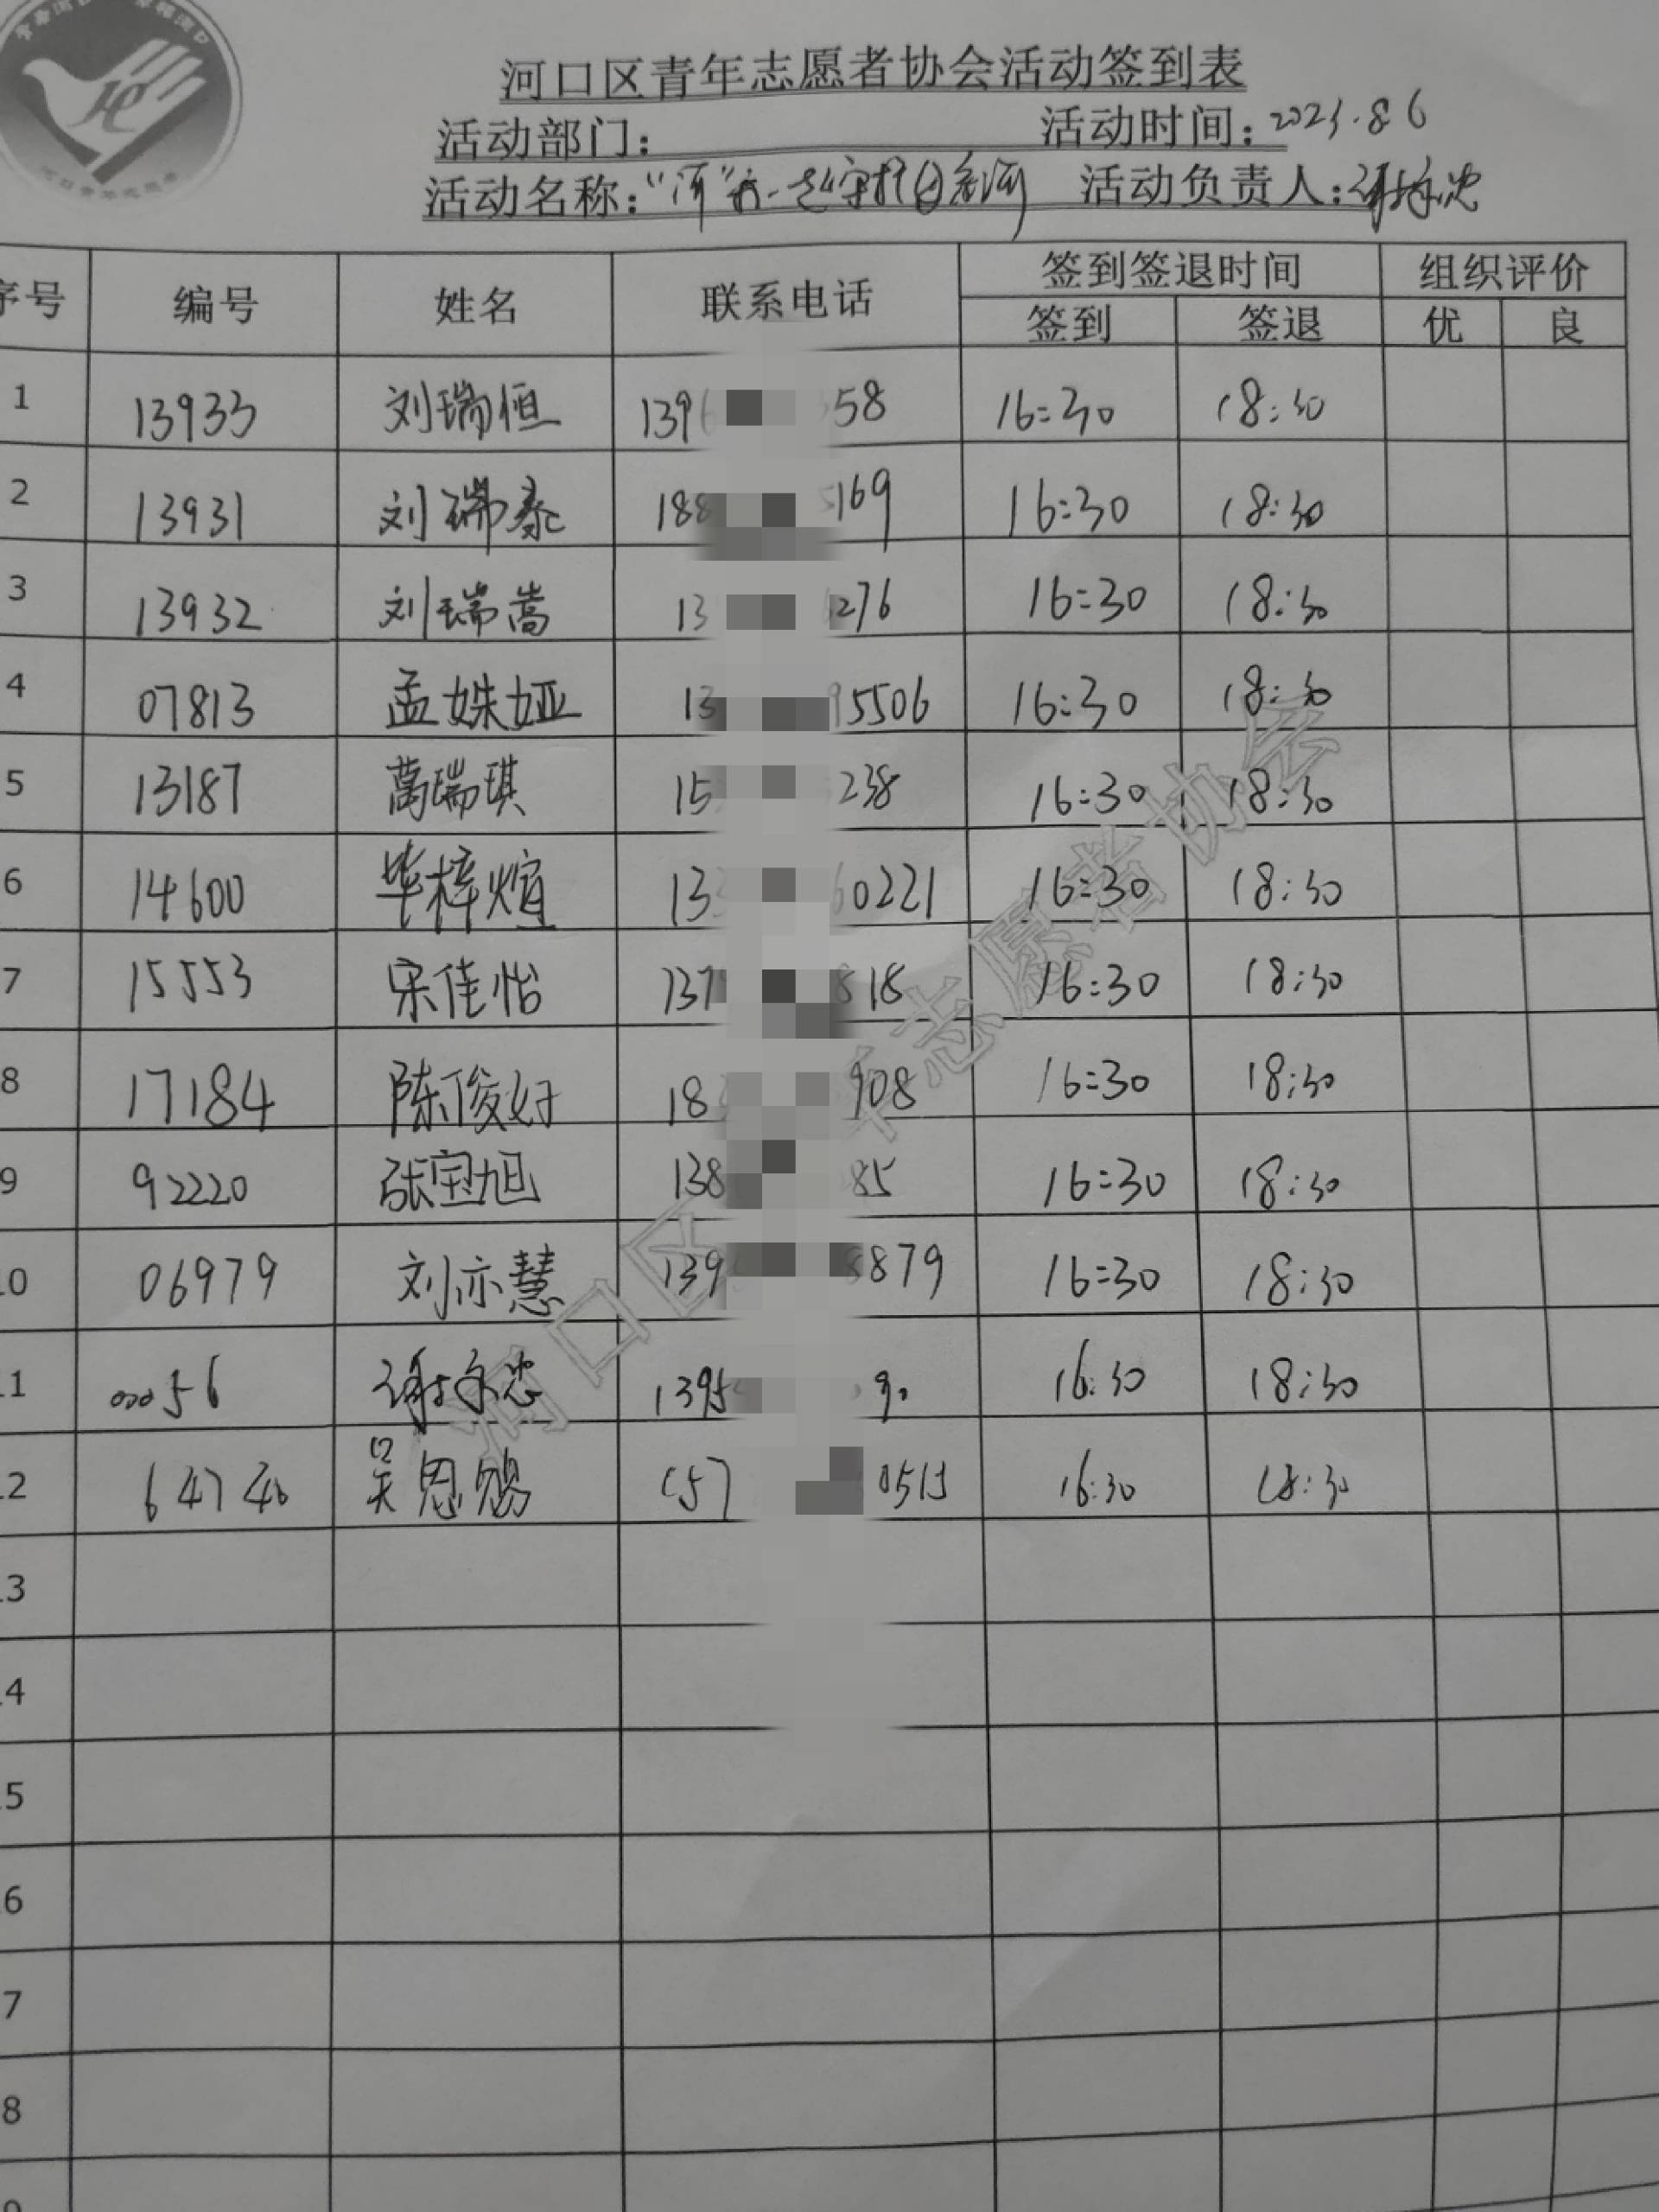 河口区青年志愿者协会活动签到表
活动部门: 活动时间: 2023.8.6
活动名称: "河"我一起守护母亲河 活动负责人:
序号 编号 姓名 联系电话 签到签退时间 组织评价
签到 签退 优 良
1 13933 刘瑞恒 1396 358 16:30 18:30
2 13931 刘瑞泰 188 5169 16:30 18:30
3 13932 刘瑞嵩 13 276 16:30 18:30
4 07813 孟姝娅 13 95506 16:30 18:30
5 13187 萬瑞琪 15 238 16:30 18:30
6 14600 毕梓煊 13 60221 16:30 18:30
7 15553 宋佳怡 137 818 16:30 18:30
8 17184 陈俊好 18 908 16:30 18:30
9 92220 张宝旭 138 85 16:30 18:30
10 06979 刘亦慧 139 8879 16:30 18:30
11 00056 1395 90 16:30 18:30
12 64740 吴思 157 0513 16:30 18:30
13
14
15
16
17
18
河口区青年志愿者协会